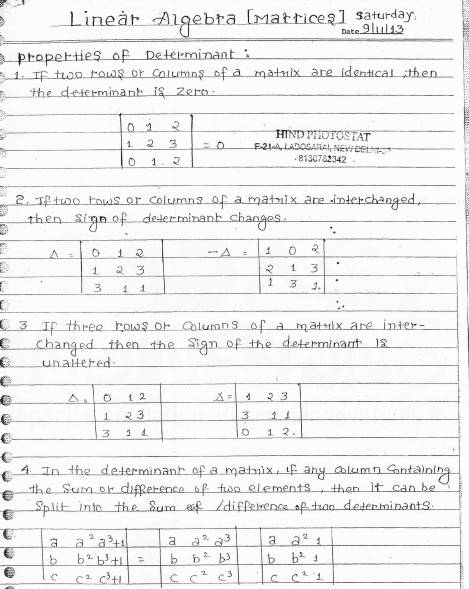 Linear Algebra [Matrices] Saturday.
Date 9/11/13
properties of Determinant :
1. If two rows or columns of a matrix are identical, then
the determinant is zero.
0 1 2
1 2 3 = 0
0 1 2
HIND PHOTOSTAT
F-21-A, LADOSARAI, NEW DELHI
8130782342
2. If two rows or columns of a matrix are interchanged,
then sign of determinant changes.
Δ = 0 1 2 -Δ = 1 0 2
1 2 3 2 1 3
3 1 1 1 3 1
3 If three rows or columns of a matrix are inter-
changed then the sign of the determinant is
unaltered.
Δ = 0 1 2 Δ = 1 2 3
1 2 3 3 1 1
3 1 1 0 1 2
4. In the determinant of a matrix, if any column containing
the sum or difference of two elements, then it can be
split into the sum of /difference of two determinants.
a a² a³+1 a a² a³ a a² 1
b b² b³+1 = b b² b³ b b² 1
c c² c³+1 c c² c³ c c² 1